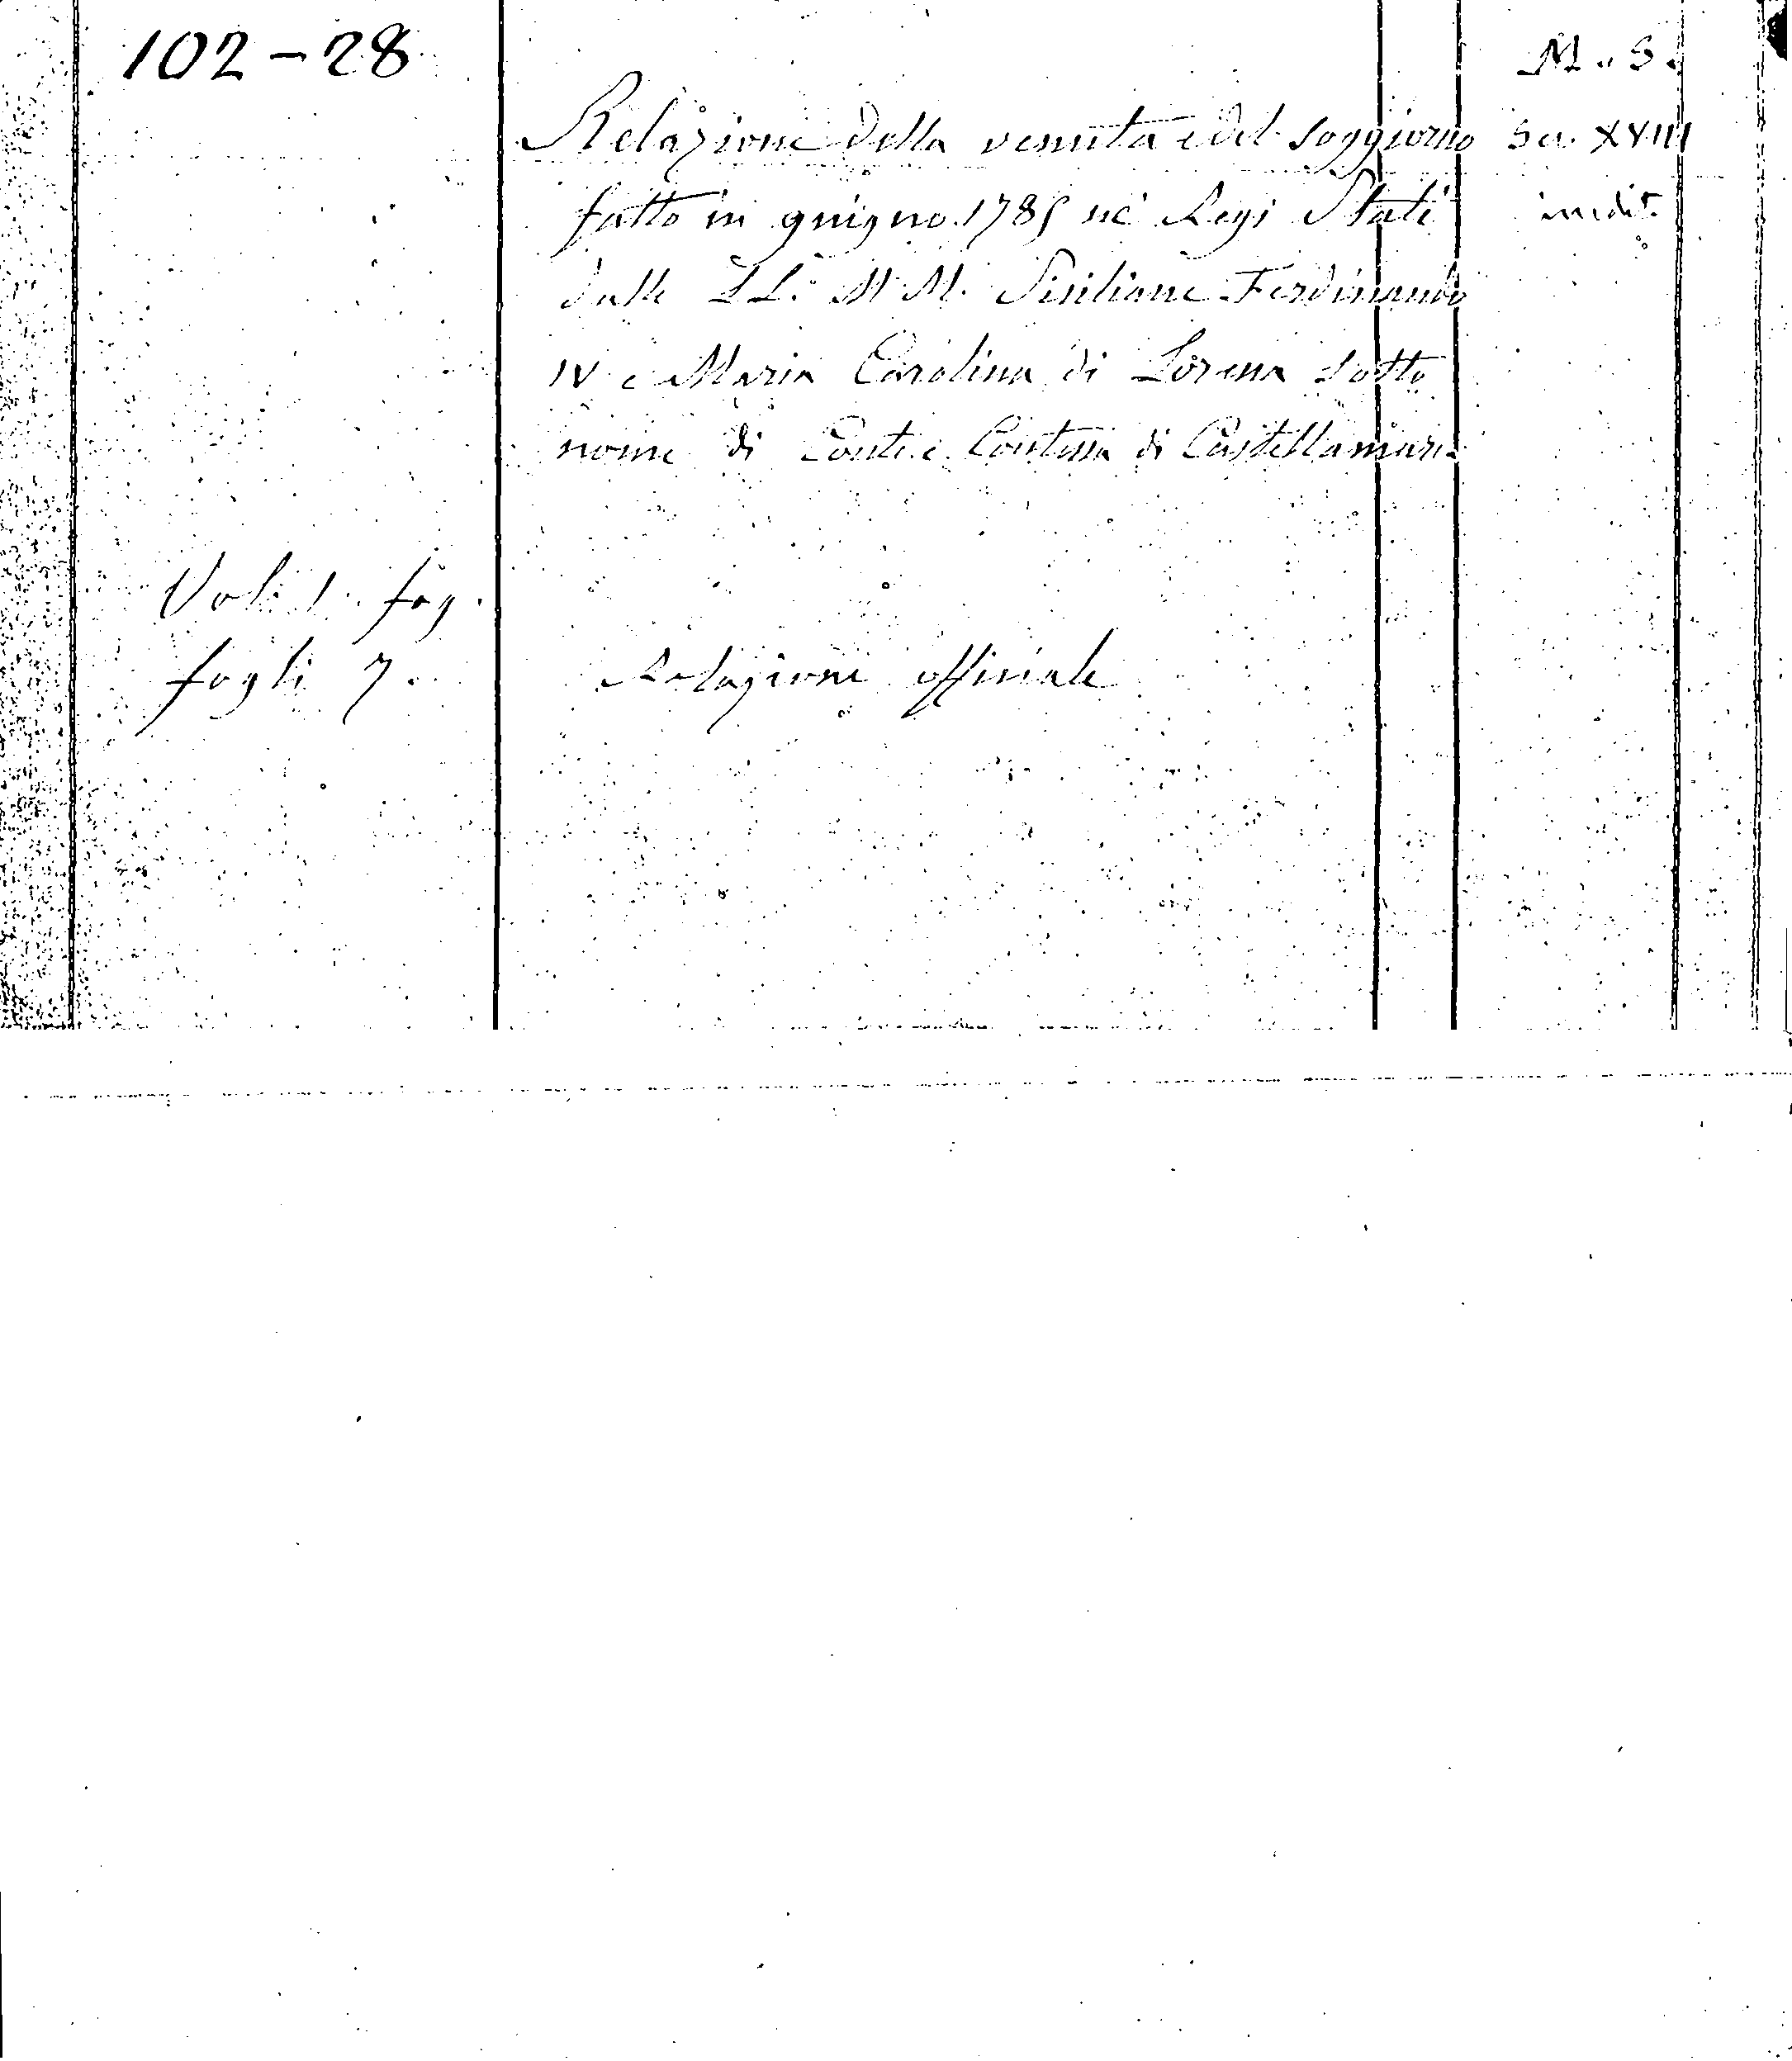 102-28
M. S.
Relazione della venuta e del soggiorno
Sec. XVIII
fatto in giugno 1785 ne' Regi Stati
inedit.
dalle LL. MM. Siciliane Ferdinando
IV e Maria Carolina di Lorena sotto
nome di Conte e Contessa di Castellamare
Vol. 1. fog.
fogli 7.
Relazione officiale